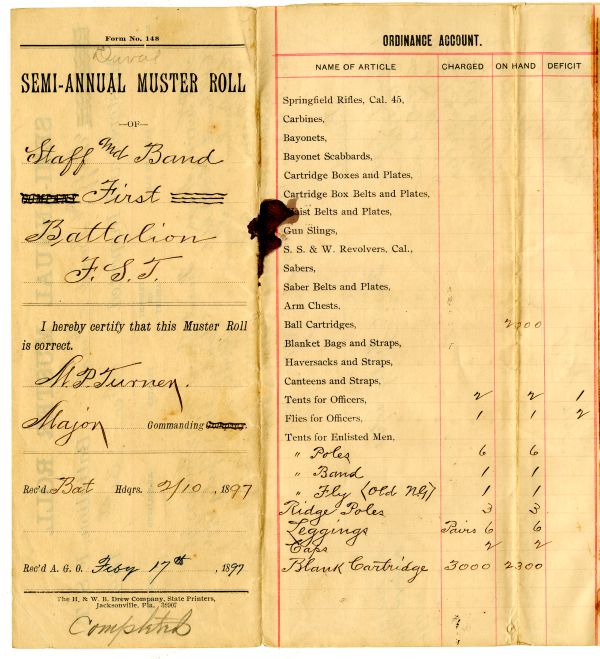 Form No. 148
Duval
SEMI-ANNUAL MUSTER ROLL
—OF—
Staff and Band
First
Battalion
F. S. T.
I hereby certify that this Muster Roll
is correct.
Major Commanding Company.
Rec'd Bat Hdqrs. 2/10, 1897
Rec'd A. G. O. Feby 17th, 1897
The H. & W. B. Drew Company, State Printers,
Jacksonville, Fla.
Completed
ORDINANCE ACCOUNT.
NAME OF ARTICLE CHARGED ON HAND DEFICIT
Springfield Rifles, Cal. 45,
Carbines,
Bayonets,
Bayonet Scabbards,
Cartridge Boxes and Plates,
Cartridge Box Belts and Plates,
Waist Belts and Plates,
Gun Slings,
S. S. & W. Revolvers, Cal.,
Sabers,
Saber Belts and Plates,
Arm Chests,
Ball Cartridges,
Blanket Bags and Straps,
Haversacks and Straps,
Canteens and Straps,
Tents for Officers, 2 2 1
Flies for Officers, 1 1 2
Tents for Enlisted Men,
" Poles 6 6
" Band 1 1
" Fly (Old NG) 1 1
Ridge Poles 3 3
Leggings Pairs 6 6
Caps 2 2
Blank Cartridge 3000 2300